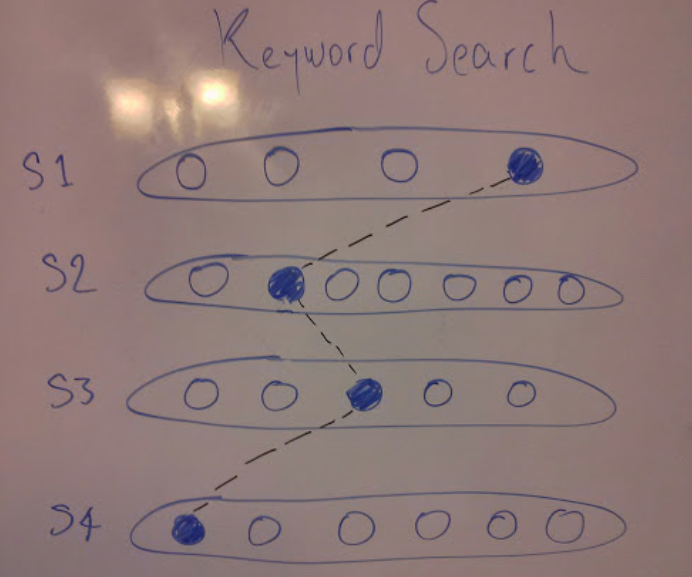 Keyword Search
S1
S2
S3
S4